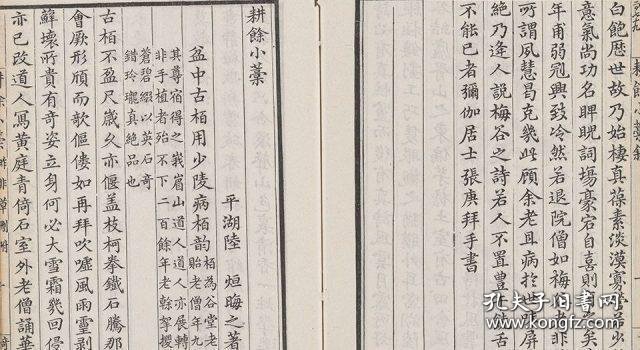 白飽歷世故乃始棲真葆素淡漠寡
意氣尚功名睥睨詞塲豪宕自喜則
年甫弱冠興致冷然若退院僧如梅
所謂夙慧昌克幾此顧余老且病於世味屏
絶乃逢人説梅谷之詩若人不置豈
不能已者彌伽居士張庚拜手書
耕餘小藁
平湖陸烜晦之著
盆中古栢用少陵病栢韵
栢爲谷堂老
貽老僧年九
其尊宿得之峩眉山道人道人亦展轉
非手植者殆不下二百餘年老榦挐攫
蒼碧綴以英石奇
錯玲瓏真絶品也
古栢不盈尺歲久亦偃盖枝柯拳鐵石騰那
會厥形頎而歌傴僂如再拜吹噓風雨靈剥
蘚壞所貴有奇姿立身何必大雪霜幾回侵
亦已改道人寫黄庭青倚石室外老僧誦華
孔夫子旧书网